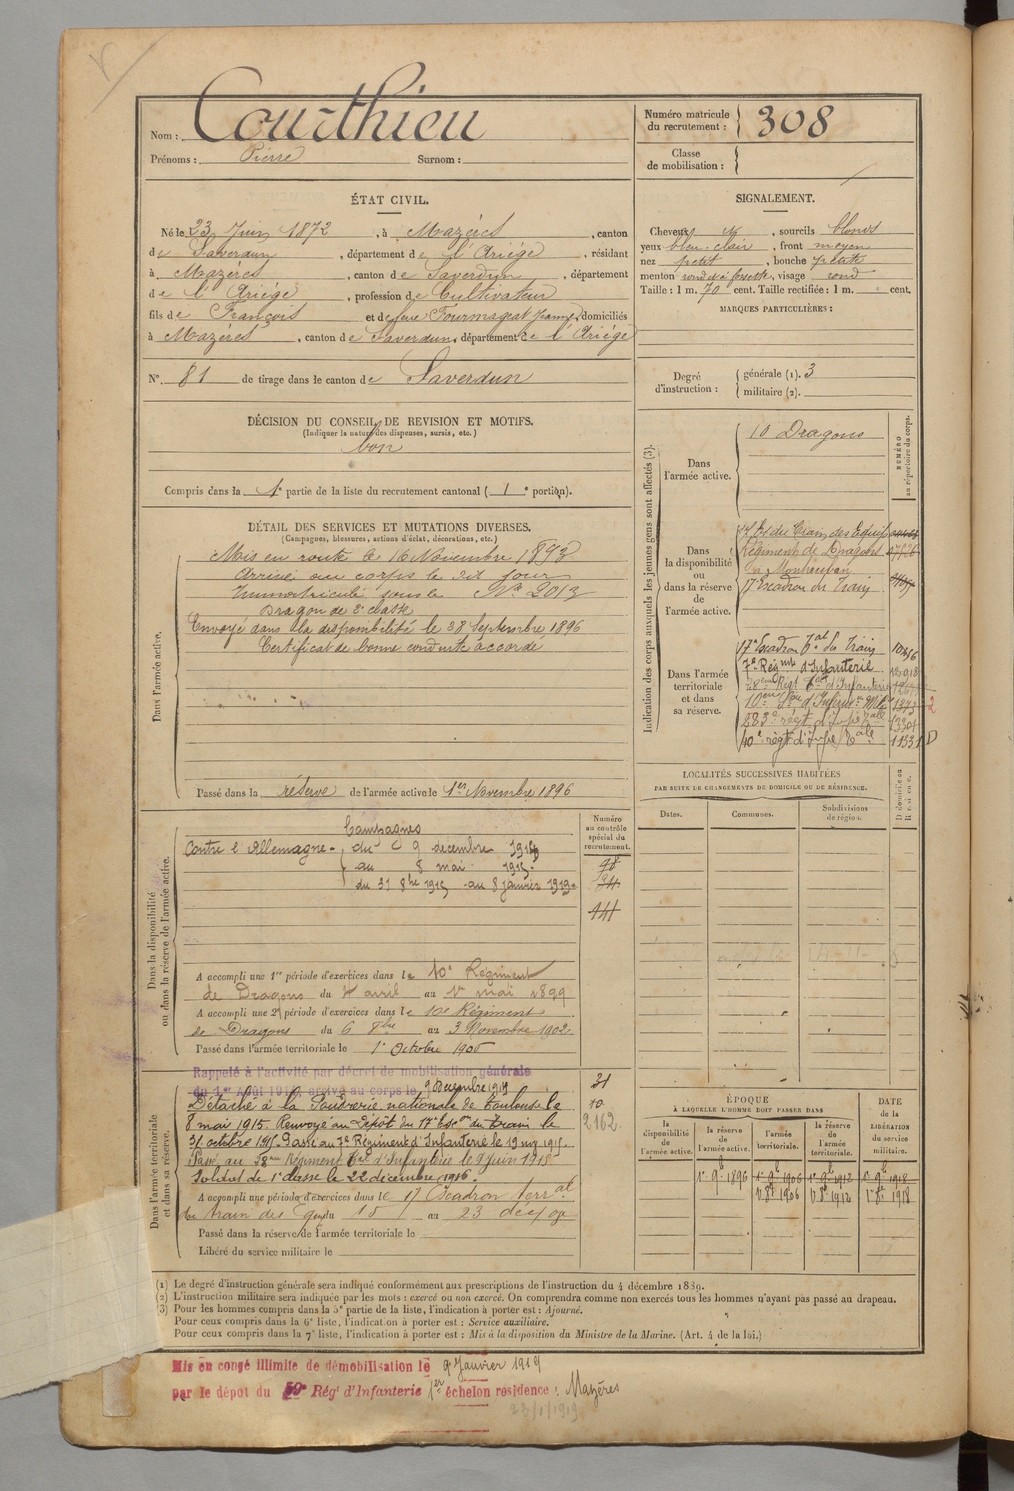 Nom : Courthieu
Prénoms : Pierre Surnom :
Numéro matricule du recrutement : 308
Classe de mobilisation :
ÉTAT CIVIL.
Né le 23 Juin 1872, à Mazères, canton
de Saverdun, département de l'Ariège, résidant
à Mazères, canton de Saverdun, département
de l'Ariège, profession de Cultivateur
fils de François et de feue Fourmageat Jeanne, domiciliés
à Mazères, canton de Saverdun, département de l'Ariège
N° 81 de tirage dans le canton de Saverdun
DÉCISION DU CONSEIL DE REVISION ET MOTIFS.
(Indiquer la nature des dispenses, sursis, etc.)
bon
Compris dans la 1e partie de la liste du recrutement cantonal (1e portion).
SIGNALEMENT.
Cheveux et, sourcils blonds
yeux bleu-clair, front moyen
nez petit, bouche petite
menton rond et à fossette, visage rond
Taille : 1 m. 70 cent. Taille rectifiée : 1 m. cent.
MARQUES PARTICULIÈRES :
Degré d'instruction : générale (1). 3
militaire (2).
DÉTAIL DES SERVICES ET MUTATIONS DIVERSES.
(Campagnes, blessures, actions d'éclat, décorations, etc.)
Dans l'armée active.
Mis en route le 16 Novembre 1893
Arrivé au corps le dit jour
Immatriculé sous le N° 2013
Dragon de 2e classe
Envoyé dans la disponibilité le 28 Septembre 1896
Certificat de bonne conduite accordé
Passé dans la réserve de l'armée active le 1er Novembre 1896
Indication des corps auxquels les jeunes gens sont affectés (3).
NUMÉRO au répertoire du corps.
Dans l'armée active.
10 Dragons
Dans la disponibilité ou dans la réserve de l'armée active.
Régiment de Dragons
à Montauban
17 Escadron du Train
Dans l'armée territoriale et dans sa réserve.
17e Escadron Tal du Train
7e Régmt d'Infanterie
LOCALITÉS SUCCESSIVES HABITÉES
PAR SUITE DE CHANGEMENTS DE DOMICILE OU DE RÉSIDENCE.
Dates. Communes. Subdivisions de région. D domicile ou R résidence.
Dans la disponibilité ou dans la réserve de l'armée active.
Numéro au contrôle spécial du recrutement.
Campagnes
Contre l'Allemagne - du 9 décembre 1914
au 8 mai 1915.
du 31 8bre 1915 au 8 janvier 1919
141
A accompli une 1re période d'exercices dans le 10e Régiment
de Dragons du 4 avril au 1er mai 1899
A accompli une 2e période d'exercices dans le 10e Régiment
de Dragons du 6 8bre au 3 Novembre 1902
Passé dans l'armée territoriale le 1er Octobre 1906
Dans l'armée territoriale et dans sa réserve.
Rappelé à l'activité par décret de mobilisation générale
du 1er Août 1914, arrivé au corps le 9 Décembre 1914
Détaché à la Poudrerie nationale de Toulouse le
8 mai 1915. Renvoyé au Dépôt du 17e Esc.on du Train le
31 octobre 1915. Passé au 7e Régiment d'Infanterie le 19
Passé au 28eme Régiment Tal d'Infanterie le 9 Juin 1918
Soldat de 1e classe le 22 décembre 1916.
A accompli une période d'exercices dans le 17 Escadron terral
du train des du 15 au 23
Passé dans la réserve de l'armée territoriale le
Libéré du service militaire le
31
10
2162
ÉPOQUE
À LAQUELLE L'HOMME DOIT PASSER DANS
la disponibilité de l'armée active. la réserve de l'armée active. l'armée territoriale. la réserve de l'armée territoriale.
DATE de la LIBÉRATION du service militaire.
1er 9b 1896 1er 9b 1906 1er 9b 1912 1er 9b 1918
1er 8b 1906 1er 8b 1912 1er 8b 1918
(1) Le degré d'instruction générale sera indiqué conformément aux prescriptions de l'instruction du 4 décembre 1889.
(2) L'instruction militaire sera indiquée par les mots : exercé ou non exercé. On comprendra comme non exercés tous les hommes n'ayant pas passé au drapeau.
(3) Pour les hommes compris dans la 5e partie de la liste, l'indication à porter est : Ajourné.
Pour ceux compris dans la 6e liste, l'indication à porter est : Service auxiliaire.
Pour ceux compris dans la 7e liste, l'indication à porter est : Mis à la disposition du Ministre de la Marine. (Art. 4 de la loi.)
Mis en congé illimité de démobilisation le 9 Janvier 1919
par le dépôt du 59e Rég' d'Infanterie 1er échelon résidence : Mazères
23/1/1919